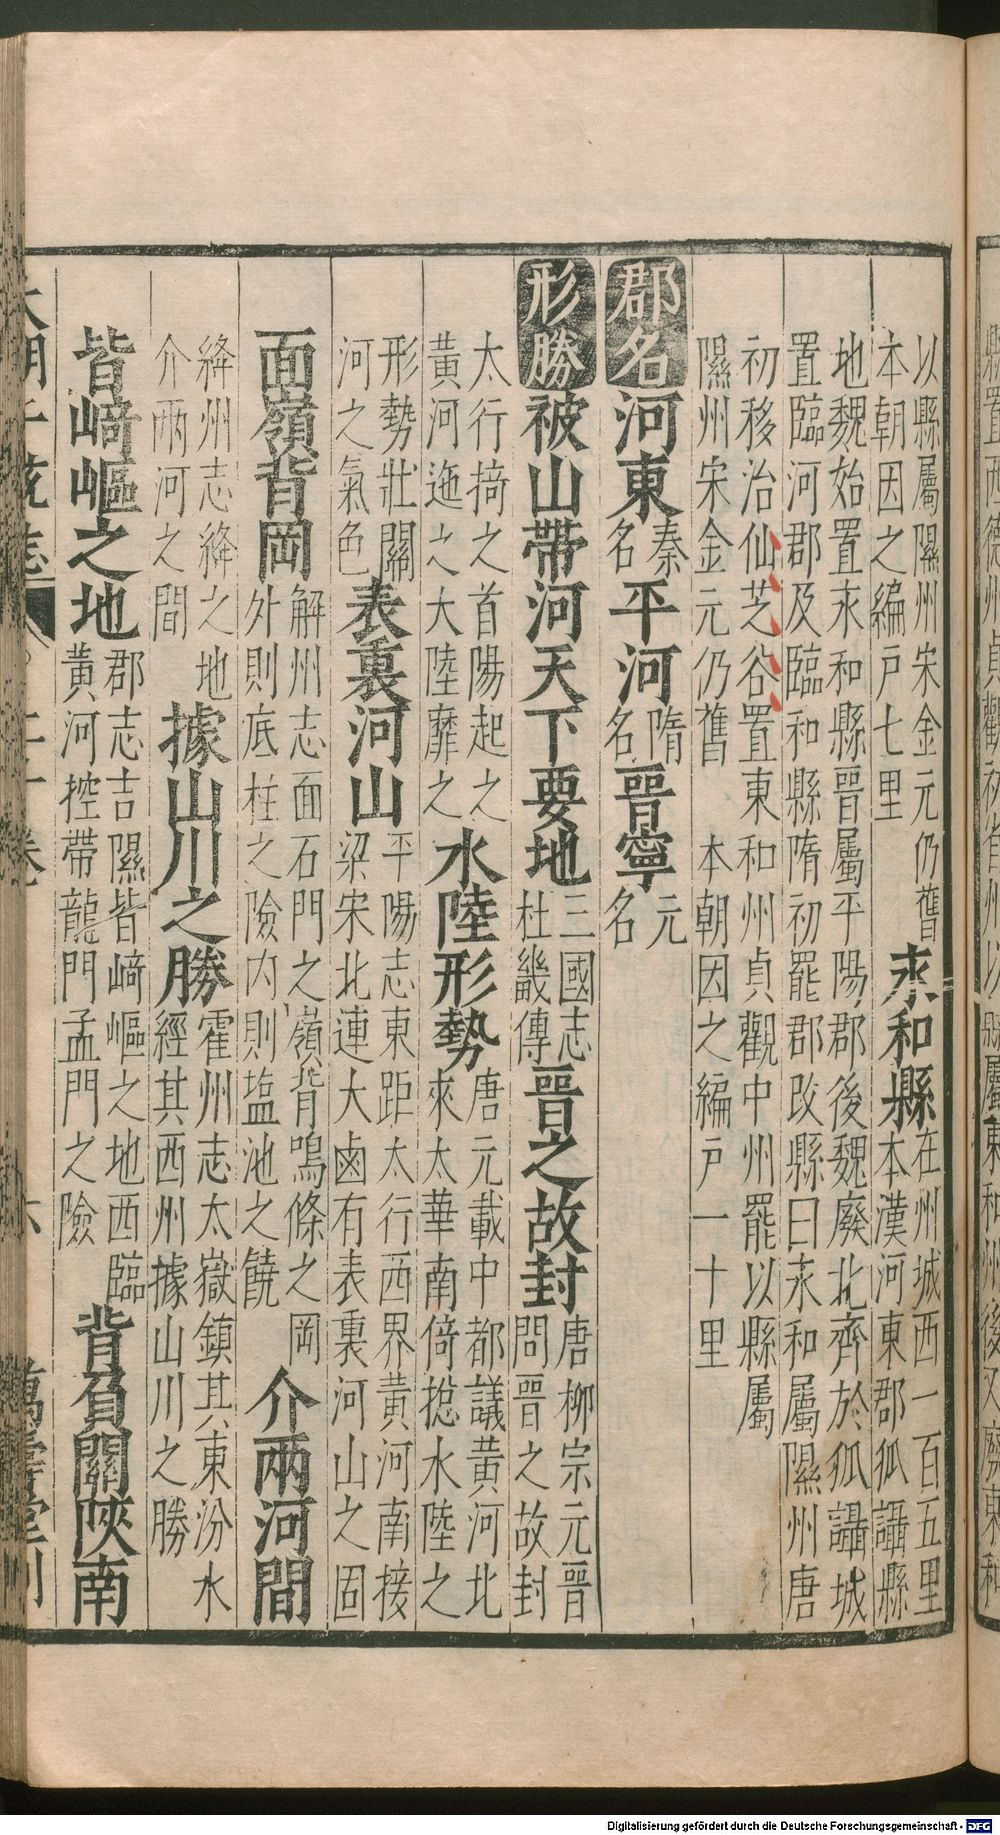 以縣屬隰州宋金元仍舊
本朝因之編戶七里
永和縣
在州城西一百五里
本漢河東郡狐讘縣
地魏始置永和縣晉屬平陽郡後魏廢北齊於狐讘城
置臨河郡及臨和縣隋初罷郡改縣曰永和屬隰州唐
初移治仙芝谷置東和州貞觀中州罷以縣屬
隰州宋金元仍舊 本朝因之編戶一十里
郡名
河東
秦名
平河
隋名
晉寧
元名
形勝
被山帶河天下要地
三國志
杜畿傳
晉之故封
唐柳宗元晉
問晉之故封
太行掎之首陽起之
黃河迤之大陸靡之
水陸形勢
唐元載中都議黃河北
來太華南倚揔水陸之
形勢壯關
河之氣色
表裏河山
平陽志東距太行西界黃河南接
梁宋北連大鹵有表裏河山之固
面嶺背岡
解州志面石門之嶺背鳴條之岡
外則底柱之險内則塩池之饒
介兩河間
絳州志絳之地
介兩河之間
據山川之勝
霍州志太嶽鎮其東汾水
經其西州據山川之勝
皆﨑嶇之地
郡志吉隰皆﨑嶇之地西臨
黃河控帶龍門孟門之險
背負關陝南
一卷
六
萬壽堂刊
Digitalisierung gefördert durch die Deutsche Forschungsgemeinschaft - DFG